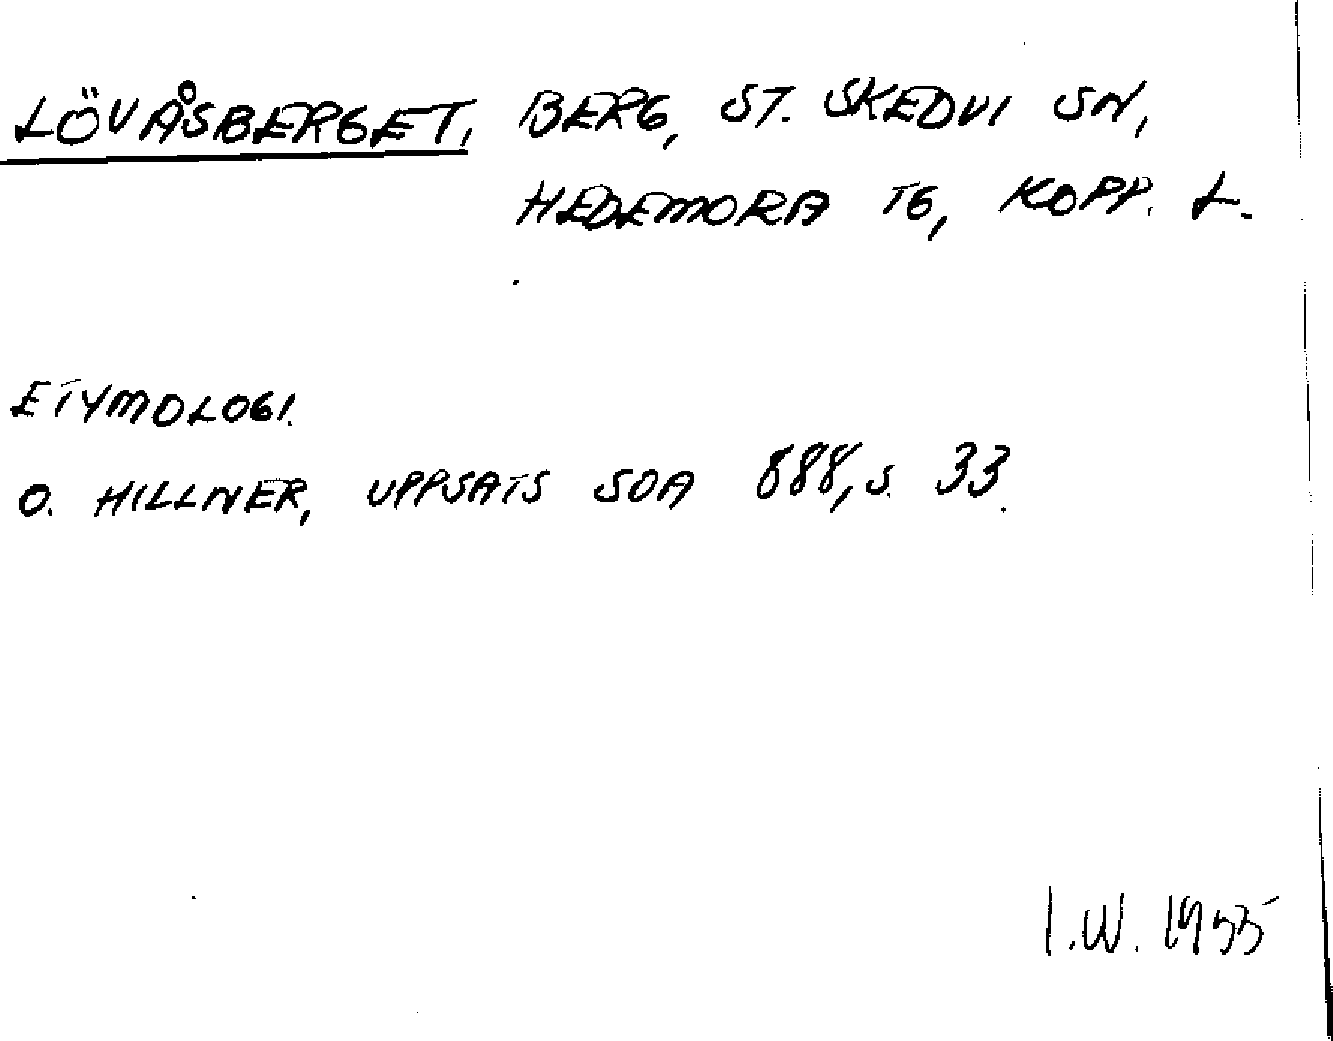 LÖVÅSBERGET, BERG, ST. SKEDVI SN,
HEDEMORA TG, KOPP. L.
ETYMOLOGI.
O. HILLNER, UPPSATS SOA 888, s. 33.
I.W. 1955